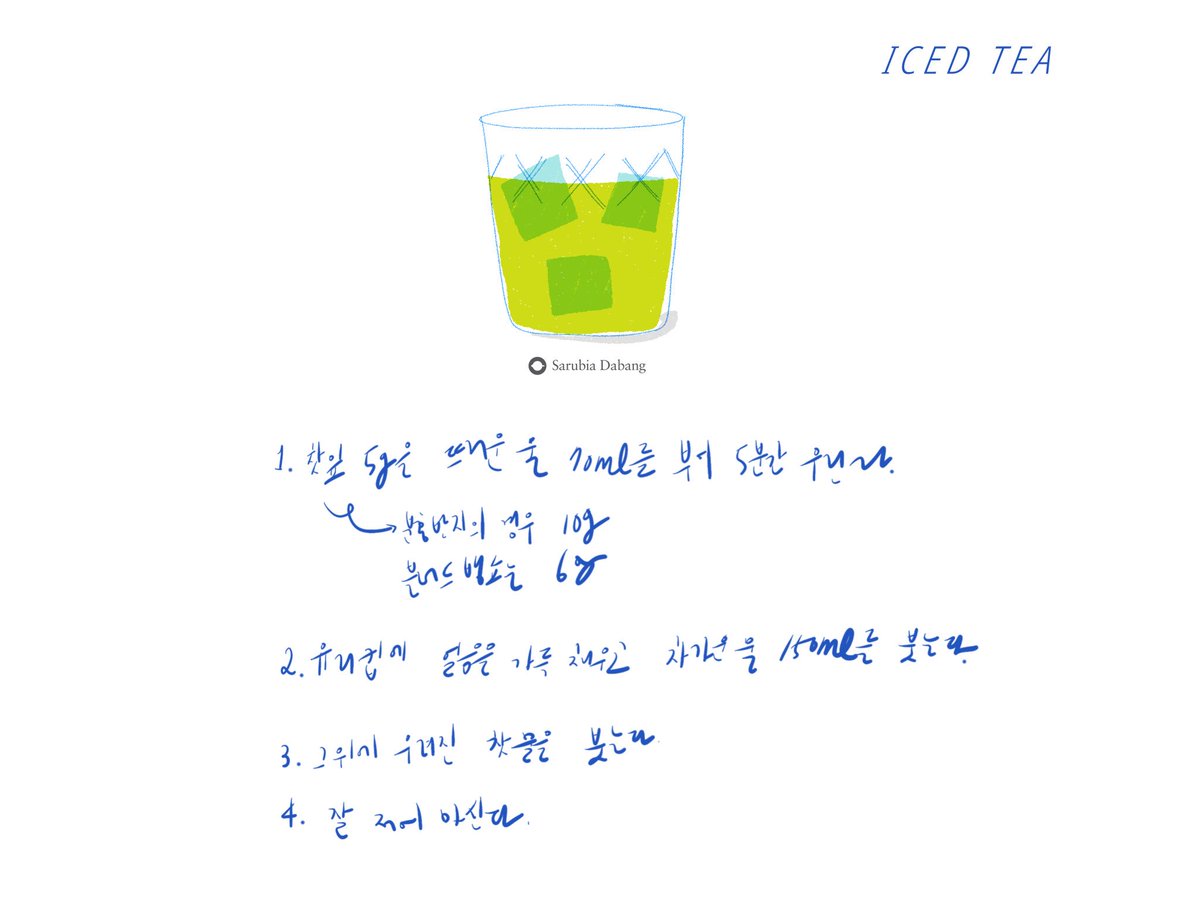 ICED TEA
Sarubia Dabang
1. 찻잎 5g을 뜨거운 물 70ml를 부어 5분간 우린다.
분홍반지의 경우 10g
블러드벨쇼는 6g
2. 유리컵에 얼음을 가득 채우고 차가운 물 150ml를 붓는다.
3. 그 위에 우려진 찻물을 붓는다.
4. 잘 저어 마신다.